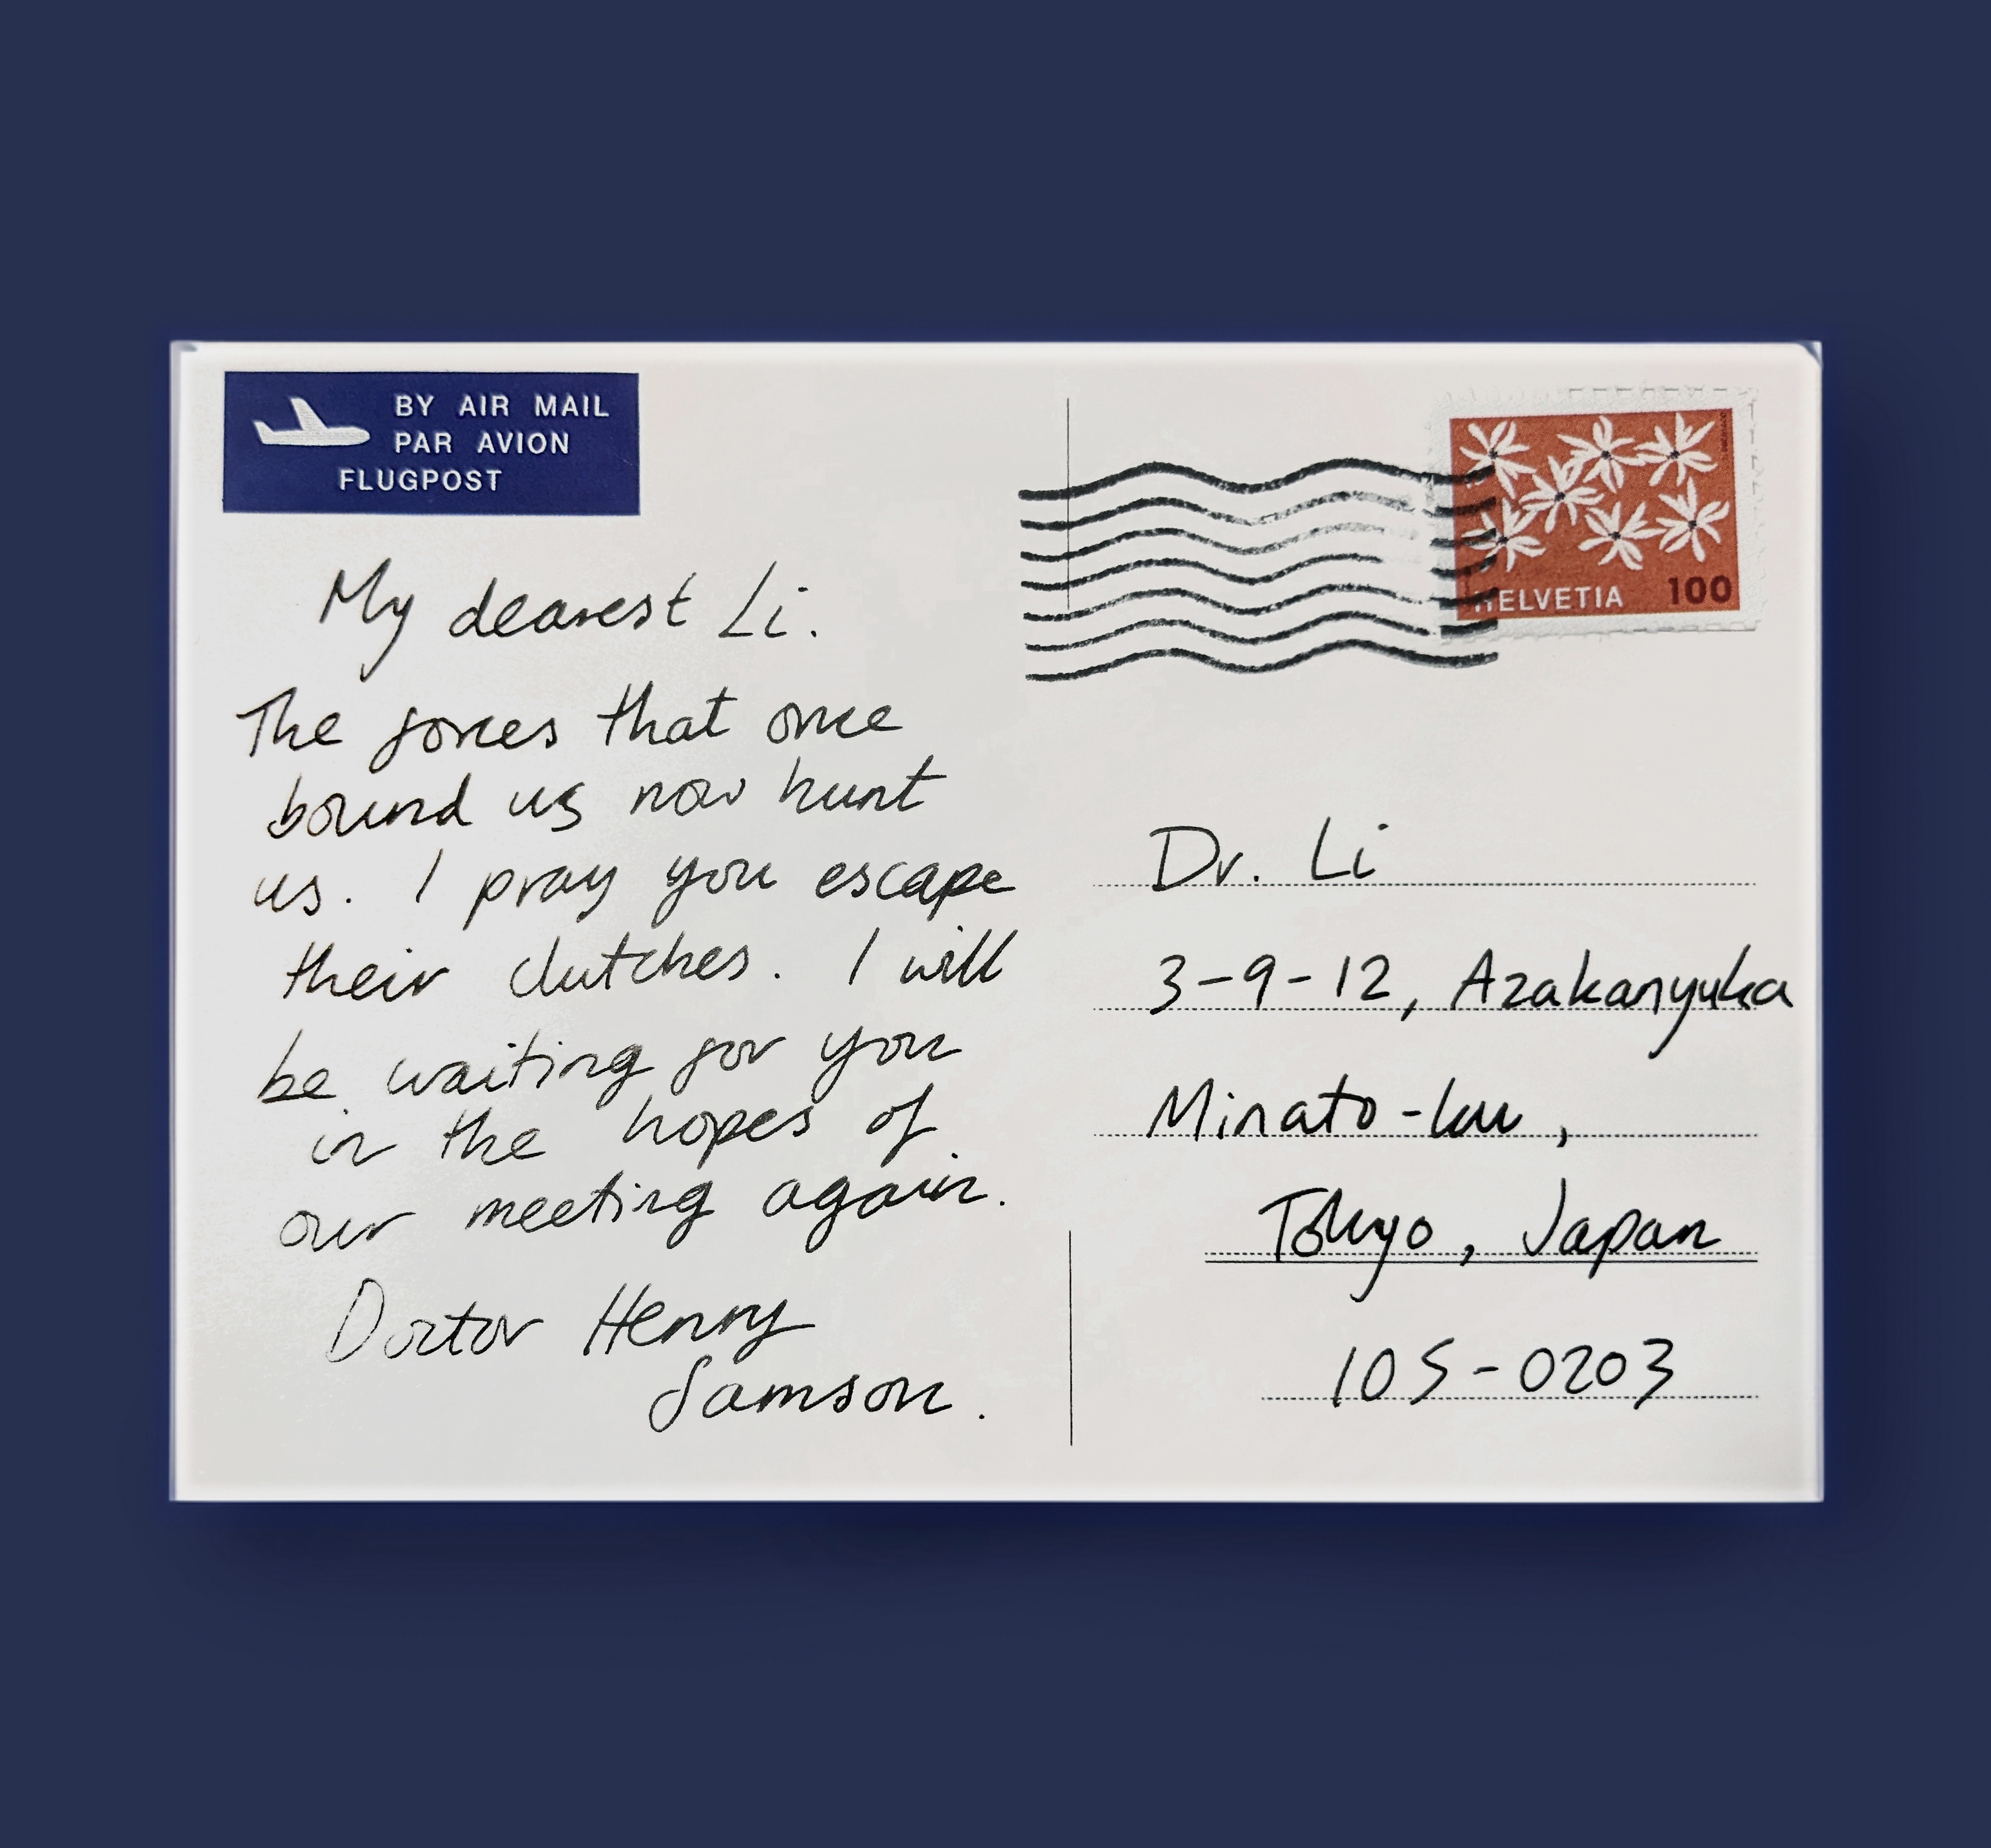 BY AIR MAIL
PAR AVION
FLUGPOST
My dearest Li.
The forces that once
bound us now hunt
us. I pray you escape
their clutches. I will
be waiting for you
in the hopes of
our meeting again.
Doctor Henry
Samson.
HELVETIA 100
Dr. Li
3-9-12, Azakanyuka
Minato-ku,
Tokyo, Japan
105-0203